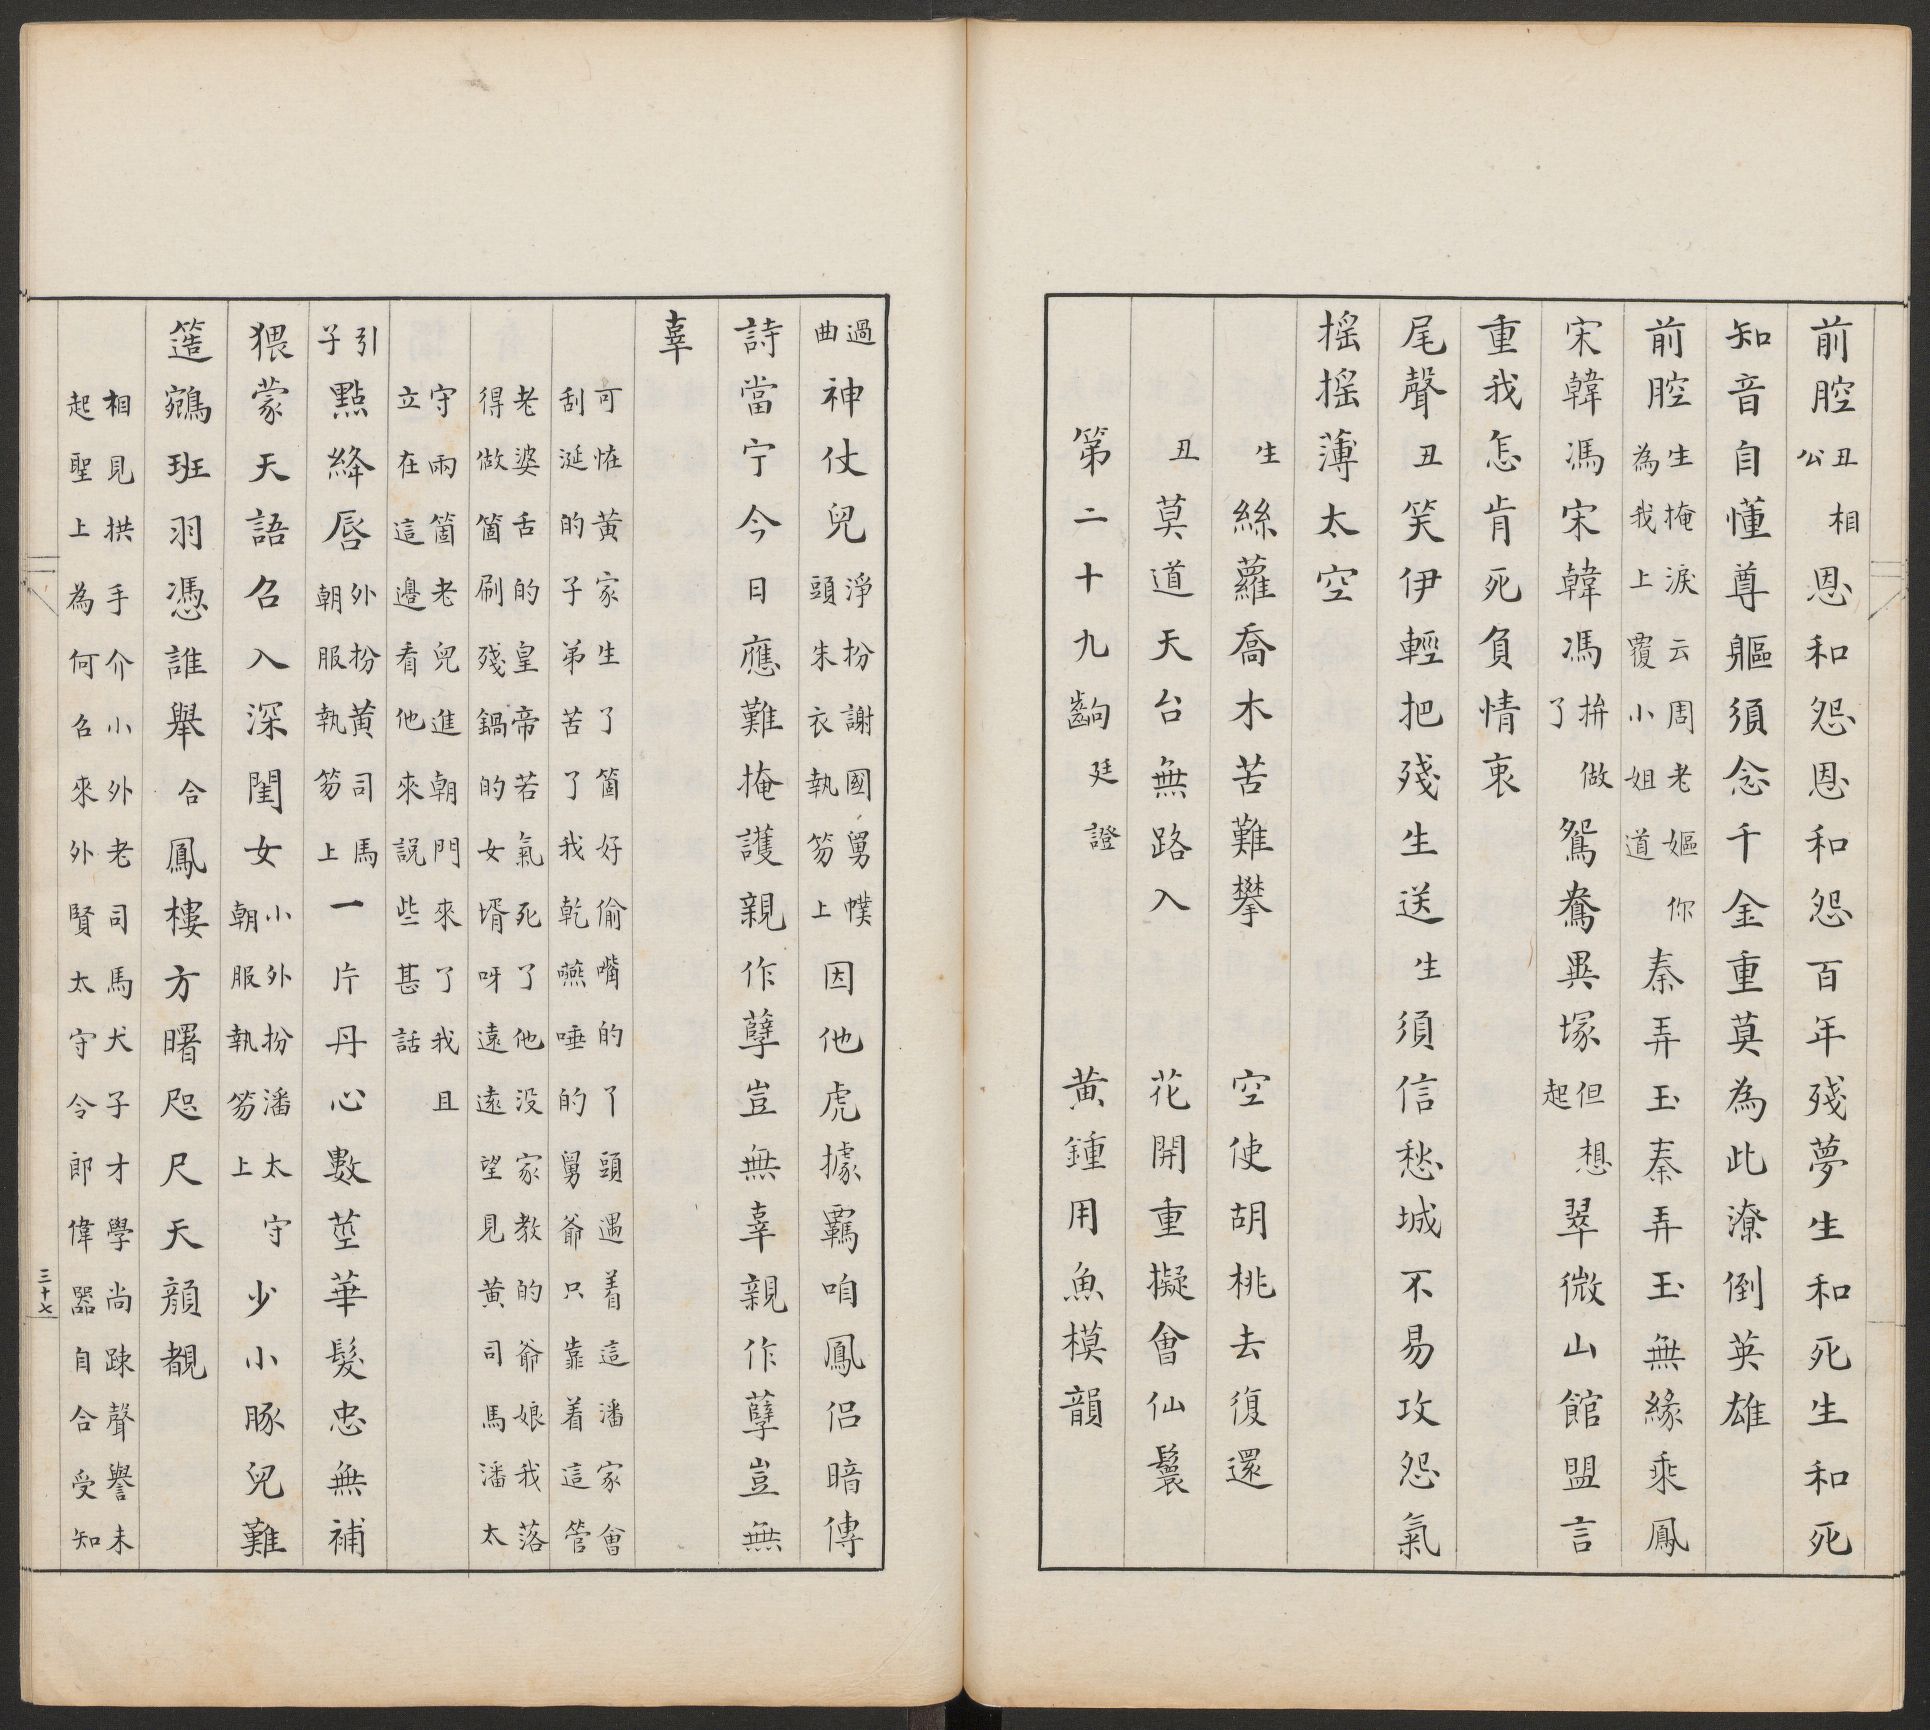 前腔丑相公恩和怨恩和怨百年殘夢生和死生和死
知音自懂尊軀須念千金重莫為此潦倒英雄
前腔生掩淚云周老嫗你為我上覆小姐道秦弄玉秦弄玉無緣乘鳳
宋韓馮宋韓馮拚做了鴛鴦異塚但想起翠微山館盟言
重我怎肯死負情衷
尾聲丑笑伊輕把殘生送生須信愁城不易攻怨氣
搖搖薄太空
生絲蘿喬木苦難攀 空使胡桃去復還
丑莫道天台無路入 花開重擬會仙鬟
第二十九齣廷證 黃鍾用魚模韻
過曲神仗兒淨扮謝國舅幞頭朱衣執笏上因他虎據羈咱鳳侶暗傳
詩當宁今日應難掩護親作孽豈無辜親作孽豈無
辜
可恠黃家生了箇好偷嘴的丫頭遇着這潘家會
刮涎的子弟苦了我乾嚥唾的舅爺只靠着這管
老婆舌的皇帝若氣死了他没家教的爺娘我落
得做箇刷殘鍋的女壻呀遠遠望見黃司馬潘太
守兩箇老兒進朝門來了我且
立在這邊看他來說些甚話
引子點絳唇外扮黃司馬朝服執笏上一片丹心數莖華髮忠無補
猥蒙天語召入深閨女小外扮潘太守朝服執笏上少小豚兒難
簉鵷班羽憑誰舉合鳳樓方曙咫尺天顏覩
相見拱手介小外老司馬犬子才學尚踈聲譽未
起聖上為何召來外賢太守令郎偉器自合受知
三十七